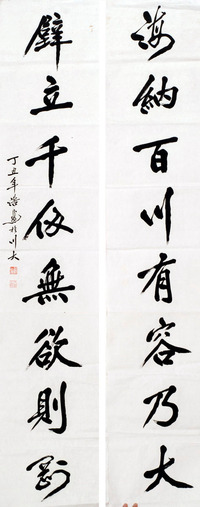 海納百川有容乃大
壁立千仞無欲則剛
丁丑年 於川大